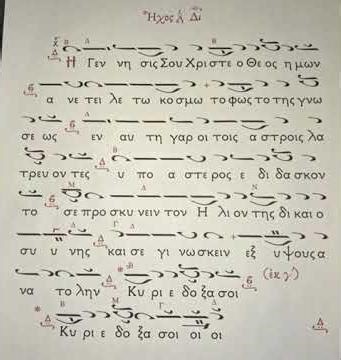 Ἦχος Δι
Η Γεν νη σις Σου Χρι στε ο Θε ος η μων
α νε τει λε τω κο σμω το φως το της γνω
σε ως εν αυ τη γαρ οι τοις α στροις λα
τρευ ον τες υ πο α στε ρος ε δι δα σκον
το σε προ σκυ νειν τον Η λι ον της δι και ο
συ υ νης και σε γι νω σκειν εξ υ ψους α
να το λην Κυ ρι ε δο ξα σοι (εκ γ')
Κυ ρι ε δο ξα σοι οι οι